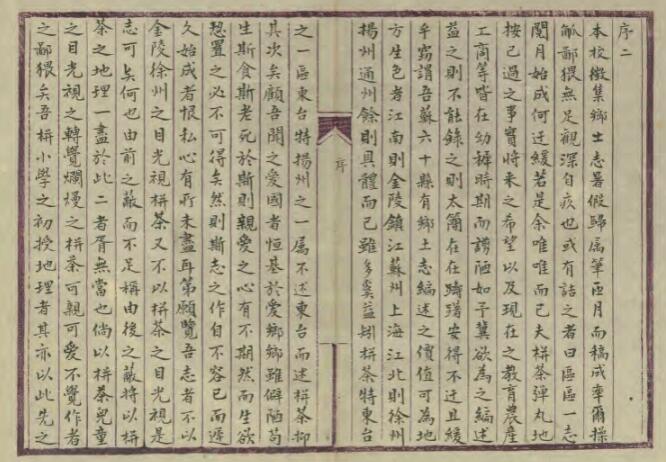 序二
本校徵集鄉土志暑假歸屬筆匝月而稿成率爾操
觚鄙猥無足觀深自疚也或有詰之者曰區區一志
閱月始成何迂緩若是余唯唯而已夫栟茶彈丸地
按已過之事實將來之希望以及現在之教育農產
工商等皆在幼稚時期而謭陋如予冀欲為之編述
益之則不能錄之則太簡在在踌躇安得不迂且緩
乎竊謂吾蘇六十縣有鄉土志編述之價值可為地
方生色者江南則金陵鎮江蘇州上海江北則徐州
揚州通州餘則具體而已雖多奚益矧栟茶特東台
序
之一區東台特揚州之一屬不述東台而述栟茶抑
其次矣顧吾聞之愛國者恒基於愛鄉鄉雖僻陋苟
生斯食斯老死於斯則親愛之心有不期然而生欲
恝置之必不可得矣然則斯志之作自不容已而遲
久始成者恨私心有所未盡耳第願覽吾志者不以
金陵徐州之目光視栟茶又不以栟茶之目光視是
志可矣何也由前之蔽而不足稱由後之蔽將以栟
茶之地理一盡於此二者胥無當也倘以栟茶兒童
之目光視之轉覺爛熳之栟茶可親可愛不覺作者
之鄙猥矣吾栟小學之初授地理者其亦以此先之